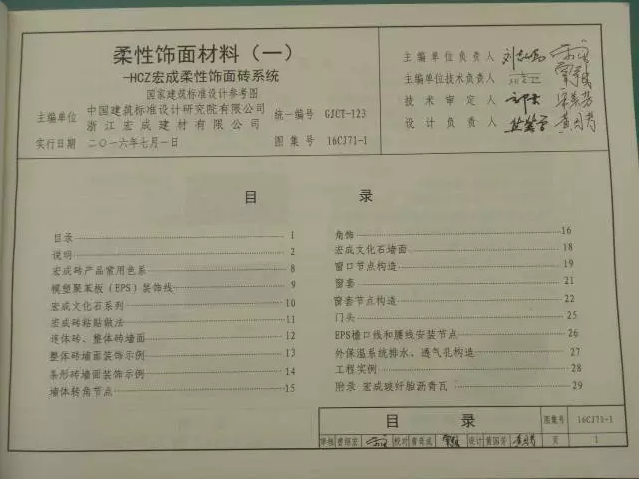 柔性饰面材料（一）
-HCZ宏成柔性饰面砖系统
国家建筑标准设计参考图
主编单位 中国建筑标准设计研究院有限公司
浙江宏成建材有限公司
统一编号 GJCT-123
实行日期 二〇一六年七月一日
图集号 16CJ71-1
主编单位负责人
主编单位技术负责人
技术审定人
设计负责人
目 录
目录 1
说明 2
宏成砖产品常用色系 8
模塑聚苯板（EPS）装饰线 9
宏成文化石系列 10
宏成砖粘贴做法 11
逐体砖、整体砖墙面 12
整体砖墙面装饰示例 13
条形砖墙面装饰示例 14
墙体转角节点 15
角饰 16
宏成文化石墙面 18
窗口节点构造 19
窗套 21
窗套节点构造 22
门头 25
EPS檐口线和腰线安装节点 26
外保温系统排水、透气孔构造 27
工程实例 28
附录 宏成玻纤胎沥青瓦 29
目 录
图集号 16CJ71-1
审核 校对 设计 页 1